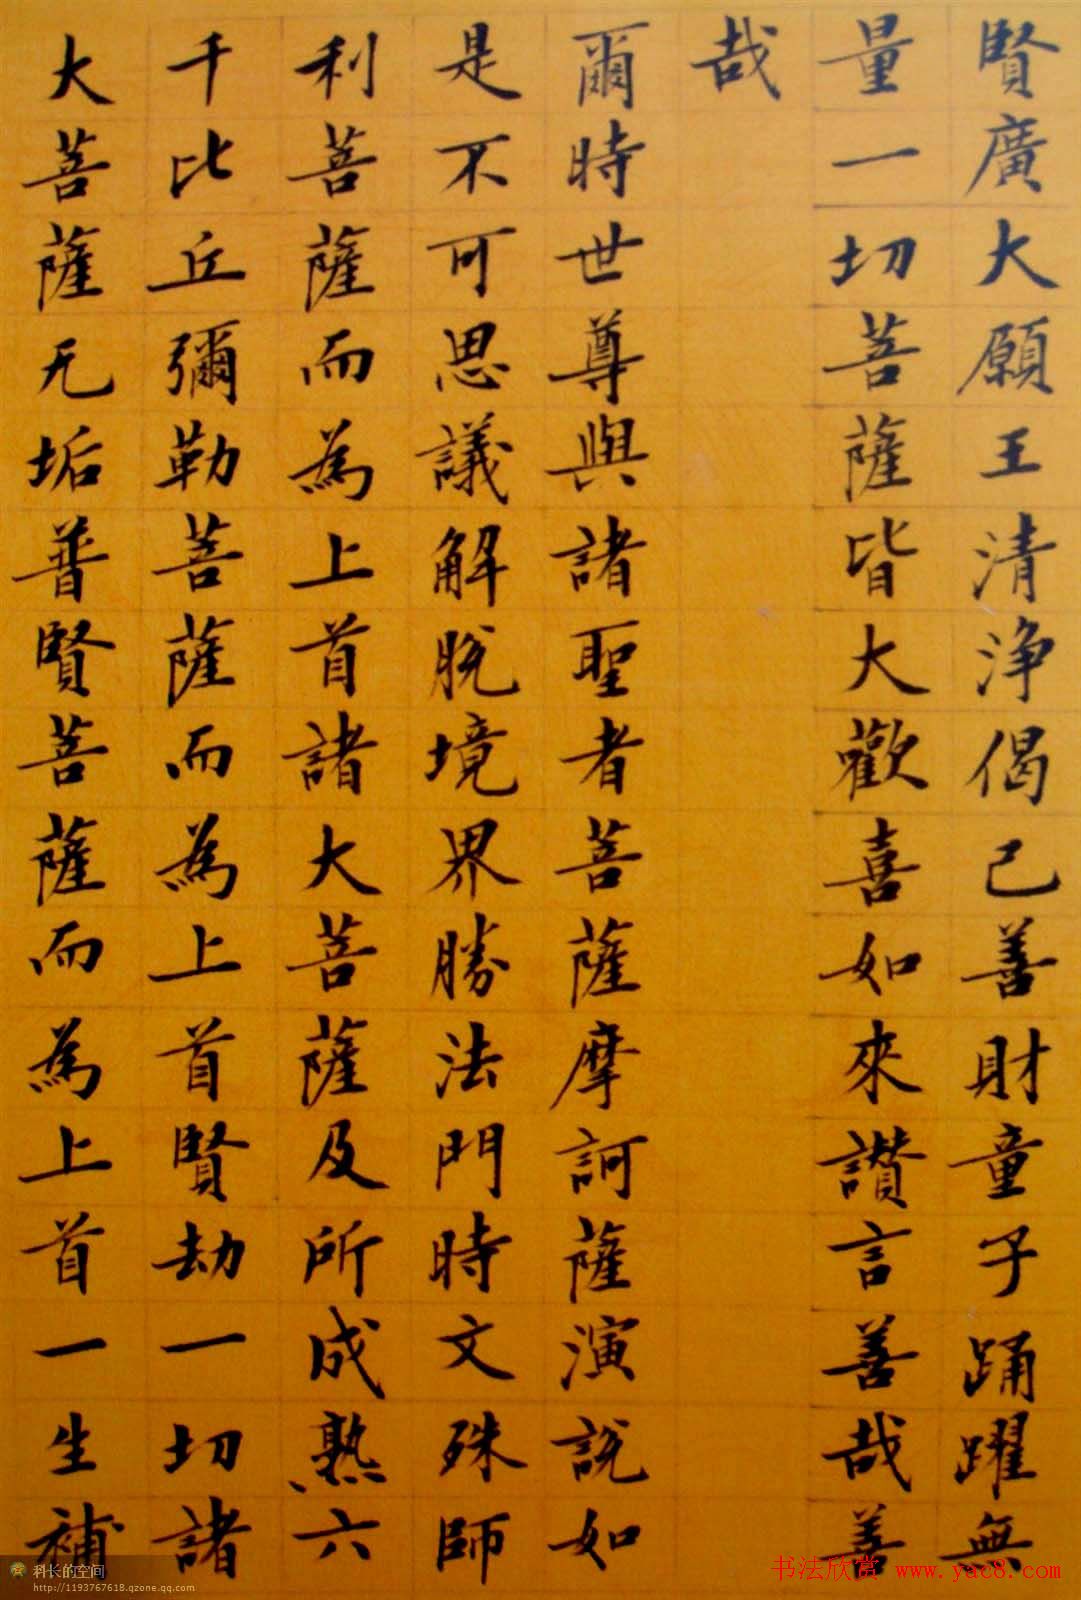 賢廣大願王清浄偈已善財童子踊躍無
量一切菩薩皆大歡喜如來讃言善哉善
哉
爾時世尊與諸聖者菩薩摩訶薩演說如
是不可思議解脫境界勝法門時文殊師
利菩薩而為上首諸大菩薩及所成熟六
千比丘彌勒菩薩而為上首賢劫一切諸
大菩薩无垢普賢菩薩而為上首一生補
科长的空间
http://1193767618.qzone.qq.com
书法欣赏 www.yac8.com